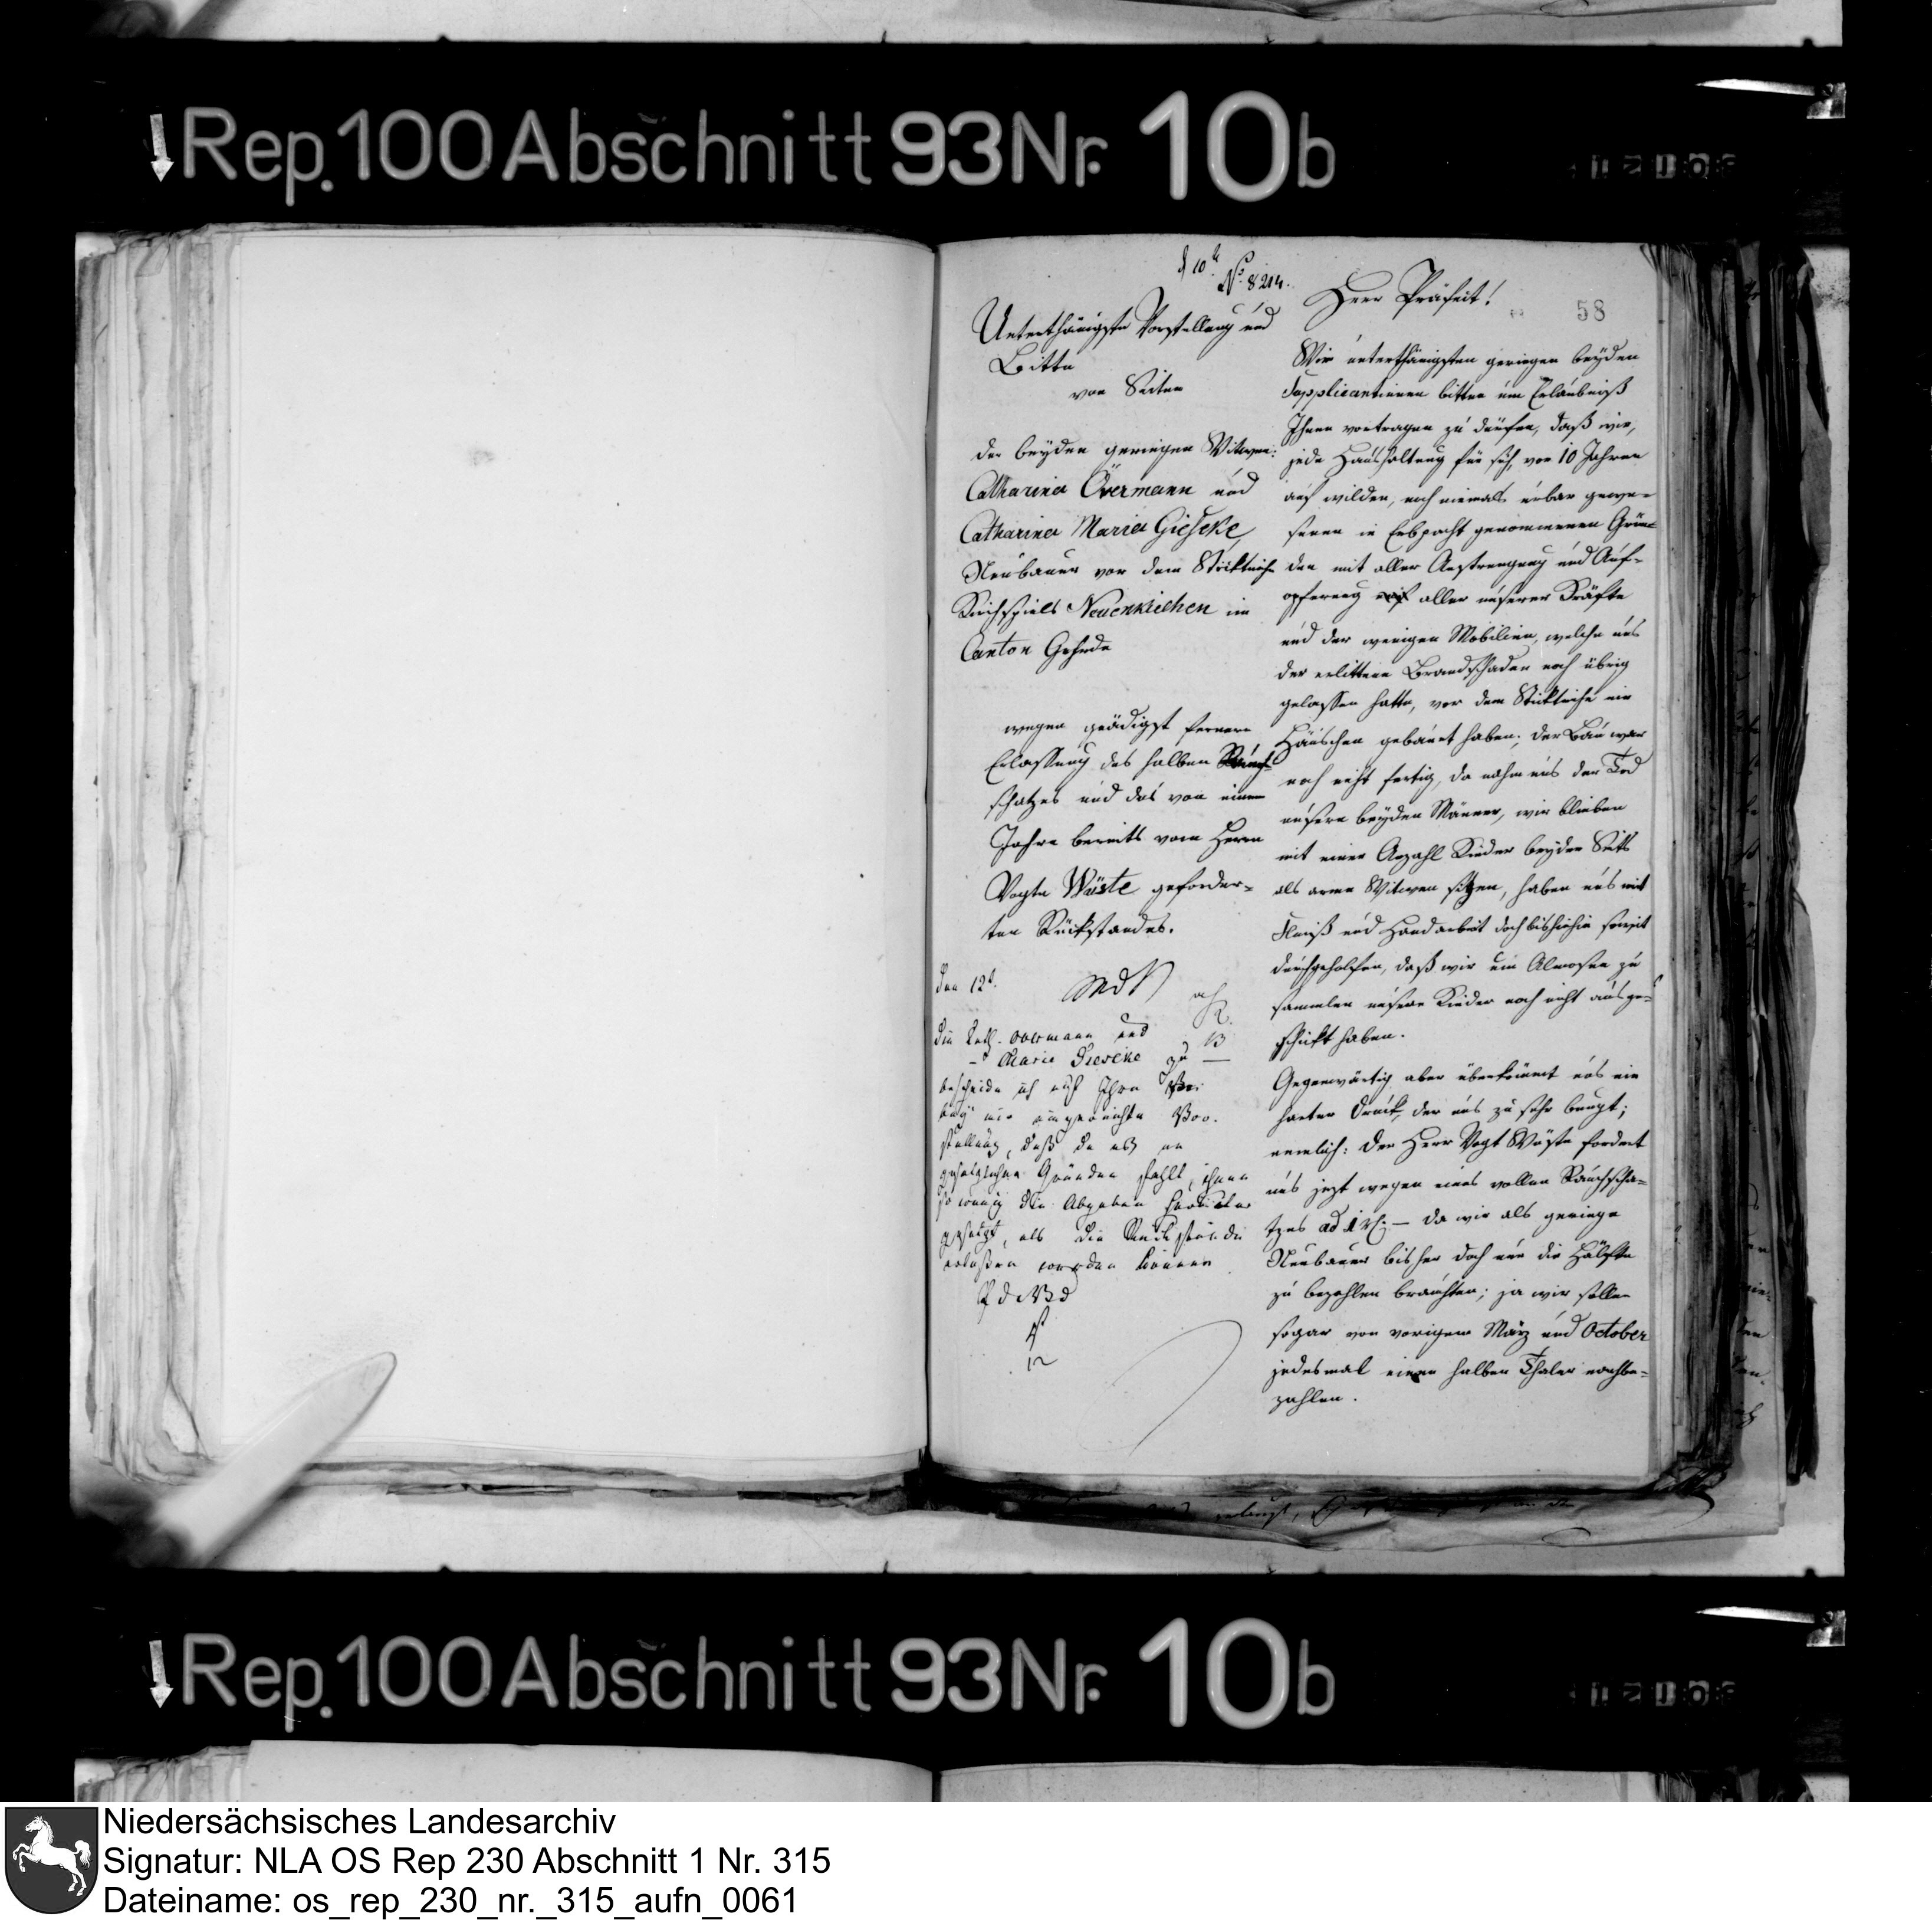 Rep. 100 Abschnitt 93 Nr. 10b
№ 8214.
58
Unterthänigste Vorstellung und
Bitte
von Seiten
der beyden geringen Witwen:
Catharina Övermann und
Catharina Maria Gieseke,
Neubauer vor dem Stickteiche
Kirchspiels Neuenkirchen im
Canton Gehrde
wegen gnädigst fernere
Erlassung des halben Rauch-
schatzes und des von einem
Jahre bereits vom Herrn
Vogte Wüste geforder-
ten Rückstandes.
den 12t.
Die Cath. Overmann und
Maria Gieseke zu
bescheide ich auf Ihre
eingereichte Vor-
stellung, daß da es an
gesetzlichen Gründen fehlt, ihnen
so wenig die Abgaben
gesetzt, als die Rückstände
erlaßen werden können
12
Herr Präfect!
Wir unterthänigsten geringen beyden
Supplicantinnen bitten um Erlaubniß
Ihnen vortragen zu dürfen, daß wir,
jede Haushaltung für sich, vor 10 Jahren
auf wilden, noch niemals urbar gewe-
senen in Erbpacht genommenen Grün-
den mit aller Anstrengung und Auf-
opferung aller unserer Kräfte
und der wenigen Mobilien, welche uns
der erlittene Brandschaden noch übrig
gelassen hatte, vor dem Stickteiche ein
Häuschen gebauet haben; der Bau war
noch nicht fertig, da nahm uns der Tod
unsere beyden Männer, wir blieben
mit einer Anzahl Kinder beyder Seits
als arme Witwen sitzen, haben uns mit
Fleiß und Handarbeit doch bishiehin soweit
durchgeholfen, daß wir um Almosen zu
sammlen unsere Kinder noch nicht ausge-
schickt haben.
Gegenwärtig aber überkömmt uns ein
harter Druck, der uns zu sehr beugt;
nemlich: der Herr Vogt Wüste fordert
uns jezt wegen eines vollen Rauchscha-
tzes ad 1 rh. — da wir als geringe
Neubauer bisher doch nur die Hälfte
zu bezahlen brauchten; ja wir sollen
sogar von vorigem März und October
jedesmal einen halben Thaler nachbe-
zahlen.
Rep. 100 Abschnitt 93 Nr. 10b
Niedersächsisches Landesarchiv
Signatur: NLA OS Rep 230 Abschnitt 1 Nr. 315
Dateiname: os_rep_230_nr._315_aufn_0061